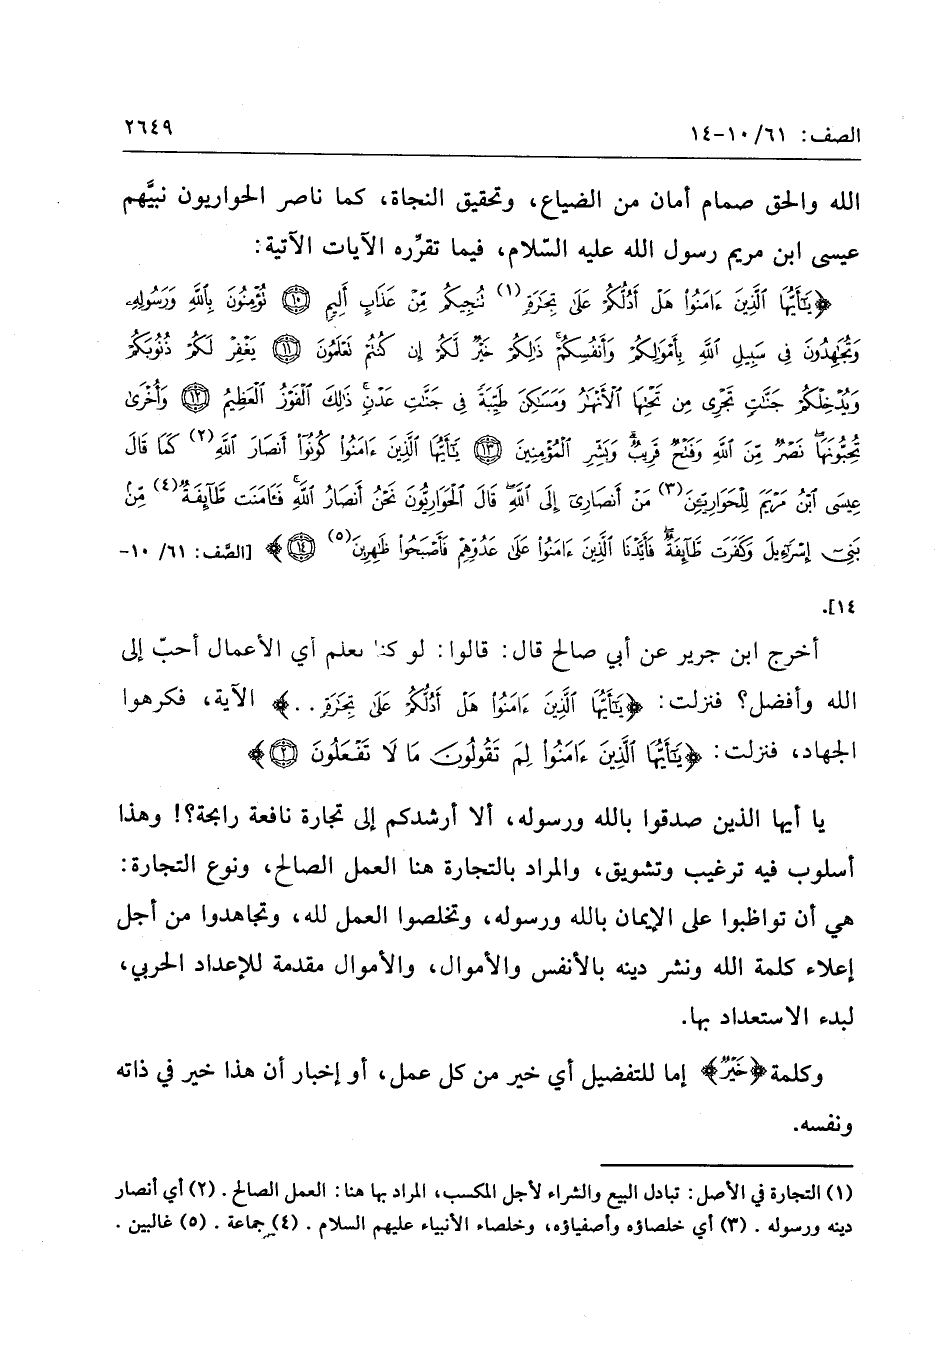 الصف: ٦١/ ١٠-١٤ ٢٦٤٩
الله والحق صمام أمان من الضياع، وتحقيق النجاة، كما ناصر الحواريون نبيَّهم
عيسى ابن مريم رسول الله عليه السّلام، فيما تقرِّره الآيات الآتية:
﴿يَٰٓأَيُّهَا ٱلَّذِينَ ءَامَنُوا۟ هَلْ أَدُلُّكُمْ عَلَىٰ تِجَٰرَةٍ(١) تُنجِيكُم مِّنْ عَذَابٍ أَلِيمٍ ١٠ تُؤْمِنُونَ بِٱللَّهِ وَرَسُولِهِۦ
وَتُجَٰهِدُونَ فِى سَبِيلِ ٱللَّهِ بِأَمْوَٰلِكُمْ وَأَنفُسِكُمْ ۚ ذَٰلِكُمْ خَيْرٌ لَّكُمْ إِن كُنتُمْ تَعْلَمُونَ ١١ يَغْفِرْ لَكُمْ ذُنُوبَكُمْ
وَيُدْخِلْكُمْ جَنَّٰتٍ تَجْرِى مِن تَحْتِهَا ٱلْأَنْهَٰرُ وَمَسَٰكِنَ طَيِّبَةً فِى جَنَّٰتِ عَدْنٍ ۚ ذَٰلِكَ ٱلْفَوْزُ ٱلْعَظِيمُ ١٢ وَأُخْرَىٰ
تُحِبُّونَهَا ۖ نَصْرٌ مِّنَ ٱللَّهِ وَفَتْحٌ قَرِيبٌ ۗ وَبَشِّرِ ٱلْمُؤْمِنِينَ ١٣ يَٰٓأَيُّهَا ٱلَّذِينَ ءَامَنُوا۟ كُونُوٓا۟ أَنصَارَ ٱللَّهِ(٢) كَمَا قَالَ
عِيسَى ٱبْنُ مَرْيَمَ لِلْحَوَارِيِّـۧنَ(٣) مَنْ أَنصَارِىٓ إِلَى ٱللَّهِ ۖ قَالَ ٱلْحَوَارِيُّونَ نَحْنُ أَنصَارُ ٱللَّهِ ۖ فَـَٔامَنَت طَّآئِفَةٌ(٤) مِّنۢ
بَنِىٓ إِسْرَٰٓءِيلَ وَكَفَرَت طَّآئِفَةٌ ۖ فَأَيَّدْنَا ٱلَّذِينَ ءَامَنُوا۟ عَلَىٰ عَدُوِّهِمْ فَأَصْبَحُوا۟ ظَٰهِرِينَ(٥) ١٤﴾ [الصَّف: ٦١/ ١٠-
١٤].
أخرج ابن جرير عن أبي صالح قال: قالوا: لو كنا نعلم أي الأعمال أحبّ إلى
الله وأفضل؟ فنزلت: ﴿يَٰٓأَيُّهَا ٱلَّذِينَ ءَامَنُوا۟ هَلْ أَدُلُّكُمْ عَلَىٰ تِجَٰرَةٍ..﴾ الآية، فكرهوا
الجهاد، فنزلت: ﴿يَٰٓأَيُّهَا ٱلَّذِينَ ءَامَنُوا۟ لِمَ تَقُولُونَ مَا لَا تَفْعَلُونَ ٢﴾
يا أيها الذين صدقوا بالله ورسوله، ألا أرشدكم إلى تجارة نافعة رابحة؟! وهذا
أسلوب فيه ترغيب وتشويق، والمراد بالتجارة هنا العمل الصالح، ونوع التجارة:
هي أن تواظبوا على الإيمان بالله ورسوله، وتخلصوا العمل لله، وتجاهدوا من أجل
إعلاء كلمة الله ونشر دينه بالأنفس والأموال، والأموال مقدمة للإعداد الحربي،
لبدء الاستعداد بها.
وكلمة ﴿خَيْرٌ﴾ إما للتفضيل أي خير من كل عمل، أو إخبار أن هذا خير في ذاته
ونفسه.
(١) التجارة في الأصل: تبادل البيع والشراء لأجل المكسب، المراد بها هنا: العمل الصالح. (٢) أي أنصار
دينه ورسوله. (٣) أي خلصاؤه وأصفياؤه، وخلصاء الأنبياء عليهم السلام. (٤) جماعة. (٥) غالبين.